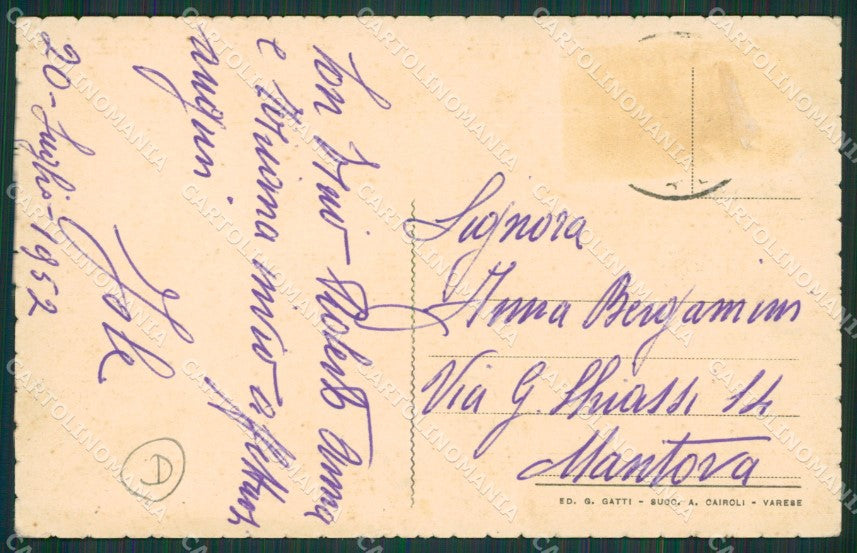 20 - Luglio - 1952
Con Pino - Roberto Anna
e Norina invio affettuosi
auguri
Jole
Signora
Anna Bergamini
Via G. Chiassi 14
Mantova
ED. G. GATTI - SUCC. A. CAIROLI - VARESE
D
CARTOLINOMANIA